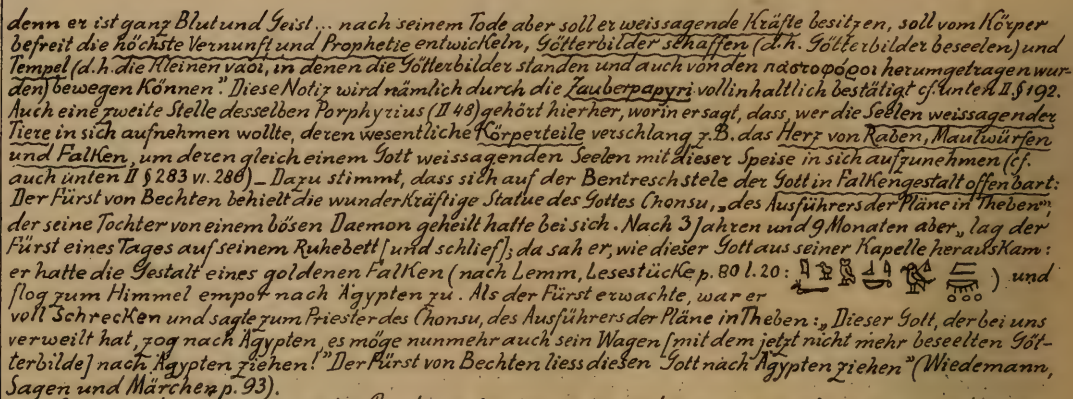 denn er ist ganz Blut und Geist... nach seinem Tode aber soll er weissagende Kräfte besitzen, soll vom Körper
befreit die höchste Vernunft und Prophetie entwickeln, Götterbilder schaffen (d.h. Götterbilder beseelen) und
Tempel (d.h. die kleinen ναοί, in denen die Götterbilder standen und auch von den παστοφόροι herumgetragen wur-
den) bewegen können." Diese Notiz wird nämlich durch die Zauberpapyri vollinhaltlich bestätigt cf. unten II. § 192.
Auch eine zweite Stelle desselben Porphyrius (II 48) gehört hierher, worin er sagt, dass, wer die Seelen weissagender
Tiere in sich aufnehmen wollte, deren wesentliche Körperteile verschlang z.B. das Herz von Raben, Maulwürfen
und Falken, um deren gleich einem Gott weissagenden Seelen mit dieser Speise in sich aufzunehmen (cf.
auch unten II § 283 u. 286) _ Dazu stimmt, dass sich auf der Bentreschstele der Gott in Falkengestalt offenbart:
Der Fürst von Bechten behielt die wunderkräftige Statue des Gottes Chonsu, „des Ausführers der Pläne in Theben",
der seine Tochter von einem bösen Daemon geheilt hatte bei sich. Nach 3 Jahren und 9 Monaten aber „lag der
Fürst eines Tages auf seinem Ruhebett [und schlief]; da sah er, wie dieser Gott aus seiner Kapelle herauskam:
er hatte die Gestalt eines goldenen Falken (nach Lemm, Lesestücke p. 80 l. 20: ) und
flog zum Himmel empor nach Ägypten zu. Als der Fürst erwachte, war er
voll Schrecken und sagte zum Priester des Chonsu, des Ausführers der Pläne in Theben: „Dieser Gott, der bei uns
verweilt hat, zog nach Ägypten, es möge nunmehr auch sein Wagen [mit dem jetzt nicht mehr beseelten Göt-
terbilde] nach Ägypten ziehen!" Der Fürst von Bechten liess diesen Gott nach Ägypten ziehen" (Wiedemann,
Sagen und Märchen p. 93).